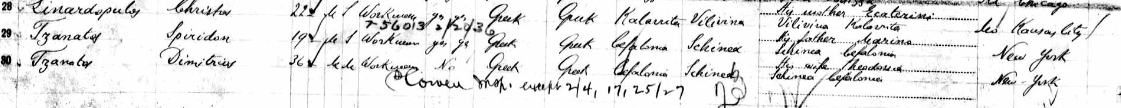 28 Linardopulos Christos 22 M S Workman yes yes Greek Greek Kalavrita Vilivina My mother Ecaterini Vilivina Kalavrita Chicago
7-56013 2/20/30
29 Tzanatos Spiridon 19 M S Workman yes yes Greek Greek Cefalonia Schinea My father Marino Schinea Cefalonia Mo Kansas City New York
30 Tzanatos Dimitrios 36 M M Workman No Greek Greek Cefalonia Schinea My wife Theodora Schinea Cefalonia New-York
Insp. except 2/4, 17, 25/27